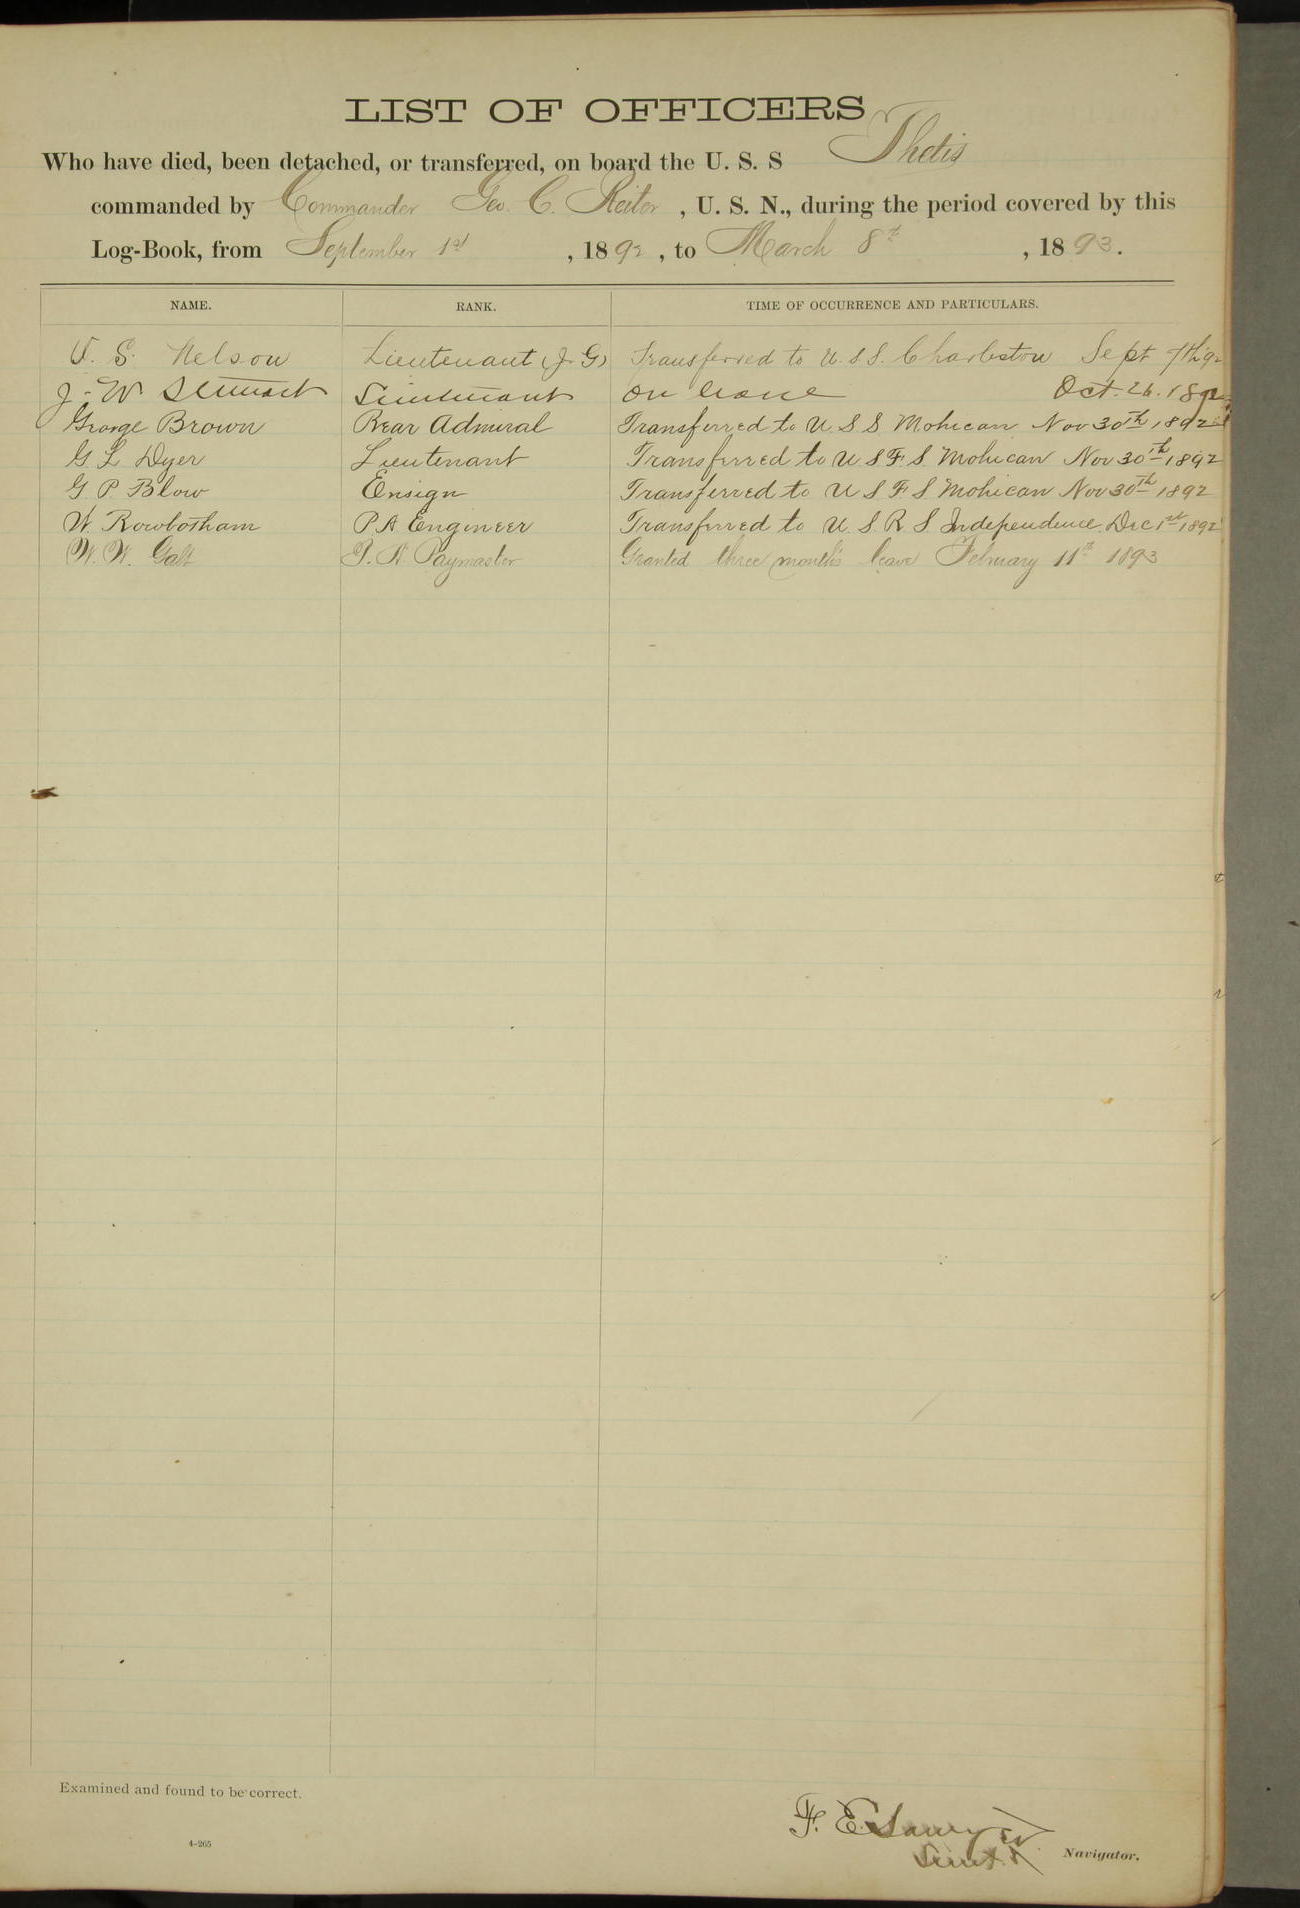 LIST OF OFFICERS
Who have died, been detached, or transferred, on board the U. S. S Thetis
commanded by Commander Geo. C. Reiter, U. S. N., during the period covered by this
Log-Book, from September 1st, 1892, to March 8th, 1893.
NAME. RANK. TIME OF OCCURRENCE AND PARTICULARS.
V. S. Nelson Lieutenant (J. G) Transferred to U. S. S. Charleston Sept 7th 92
J. W Stewart Lieutenant on leave Oct. 26. 1892
George Brown Rear Admiral Transferred to U S S Mohican Nov 30th 1892
G L Dyer Lieutenant Transferred to U S F S Mohican Nov 30th 1892
G P. Blow Ensign Transferred to U S F S Mohican Nov 30th 1892
W Rowbotham P A Engineer Transferred to U. S. R. S. Independence Dec 1st 1892
W. W. Galt P. A. Paymaster Granted three months leave February 11th 1893
Examined and found to be correct.
4-265
F. E. Sawyer
Lieut.
Navigator.